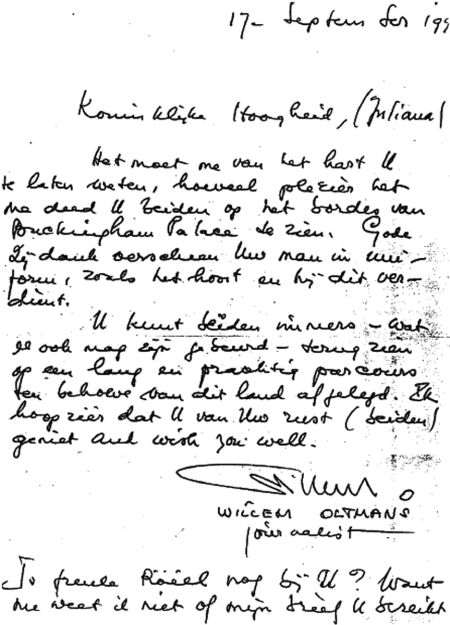 17- September 199
Koninklijke Hoogheid, (Juliana)
Het moet me van het hart U
te laten weten, hoeveel plezier het
me deed U beiden op het bordes van
Buckingham Palace te zien. Gode
zij dank verscheen Uw man in uni-
form, zoals het hoort en hij dit ver-
dient.
U kunt beiden immers - wat
er ook mag zijn gebeurd - terug zien
op een lang en prachtig parcours
ten behoeve van dit land afgelegd. Ik
hoop zeer dat U van Uw rust (beiden)
geniet and wish you well.
Willem O
WILLEM OLTMANS
journalist
Is freule Röell nog bij U? Want
me weet ik niet of mijn brief U bereikt